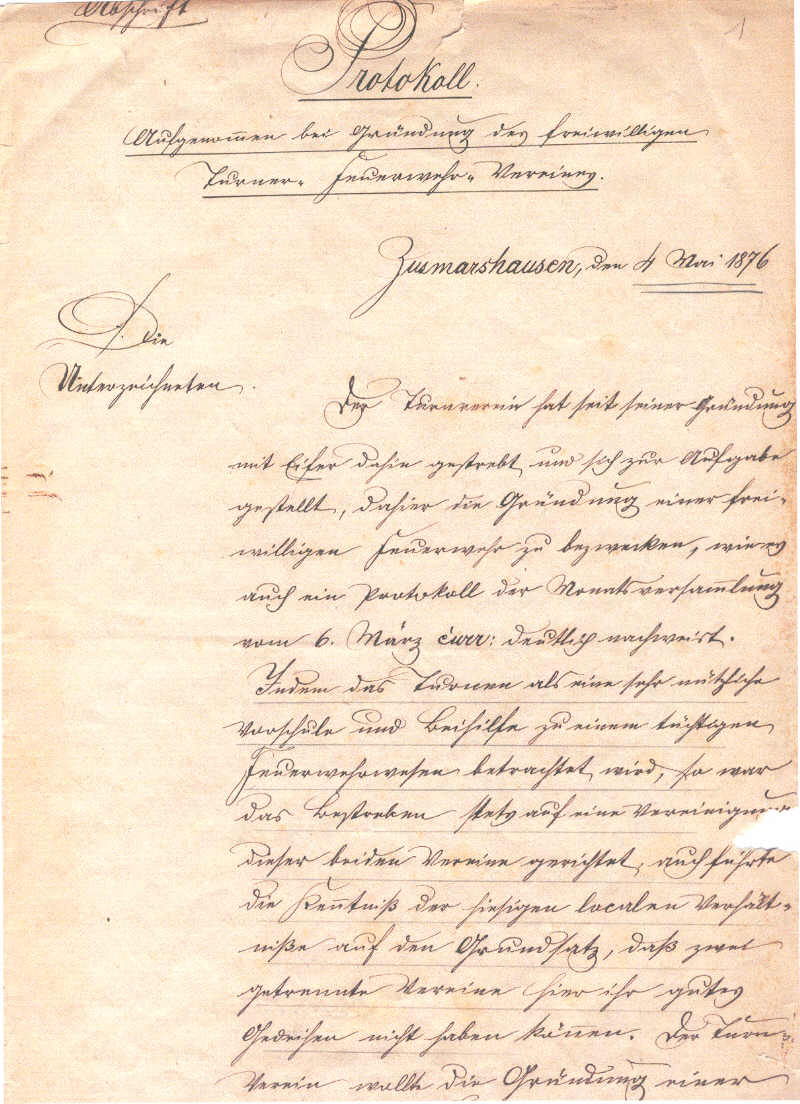 Abschrift
1
Protokoll.
Aufgenommen bei Gründung des freiwilligen
Turner- Feuerwehr- Vereines.
Zusmarshausen, den 4 Mai 1876
Die
Unterzeichneten.
Der Turnverein hat seit seiner Gründung
mit Eifer dahin gestrebt und sich zur Aufgabe
gestellt, dahier die Gründung einer frei-
willigen Feuerwehr zu bezwecken, wie es
auch ein Protokoll der Monatsversammlung
vom 6. März curr: deutlich nachweist.
Indem das Turnen als eine sehr nützliche
Vorschule und Beihilfe zu einem tüchtigen
Feuerwehrwesen betrachtet wird, so war
das Bestreben stets auf eine Vereinigung
dieser beiden Vereine gerichtet, auch führte
die Kenntniß der hiesigen localen Verhält-
niße auf den Grundsatz, daß zwei
getrennte Vereine hier ihr gutes
Gedeihen nicht haben können. Der Turn-
Verein wollte die Gründung einer